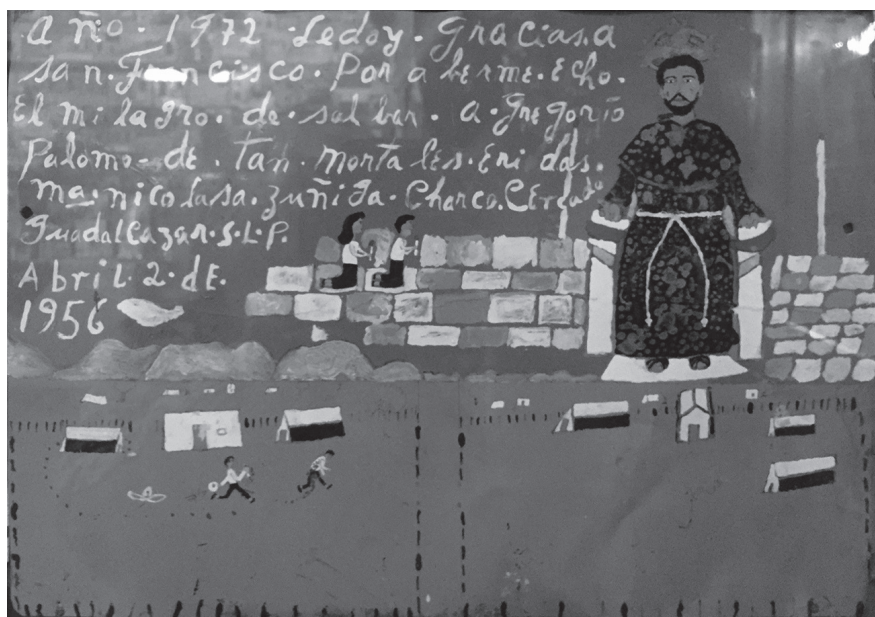 año · 1972 · Ledoy · Gracias.a
san. Francisco. Por a berme. echo.
El mi lagro. de. sal bar. a. gregorio
Palomo- de. tan. morta les. eri das.
ma. nicolasa. zuñiga. Charco. Cercado
Guadalcazar. S. L. P.
Abril. 2. de.
1956